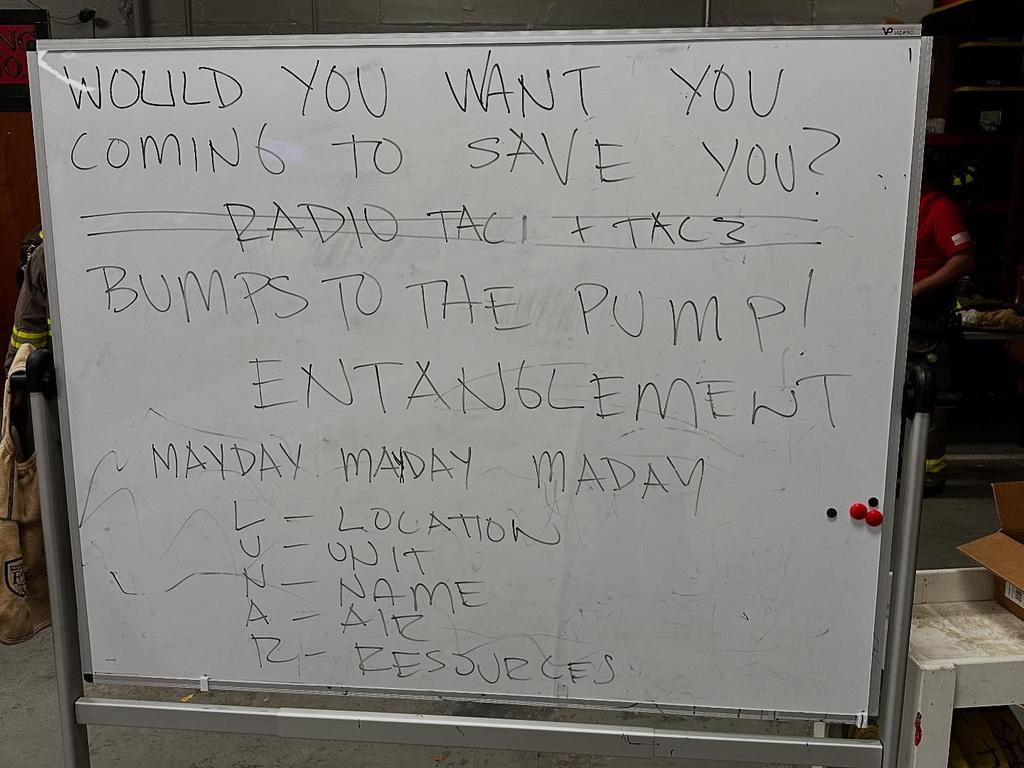 WOULD YOU WANT YOU
COMING TO SAVE YOU?
RADIO TAC 1 + TAC 3
BUMPS TO THE PUMP!
ENTANGLEMENT
MAYDAY MAYDAY MADAY
L - LOCATION
U - UNIT
N - NAME
A - AIR
R - RESOURCES